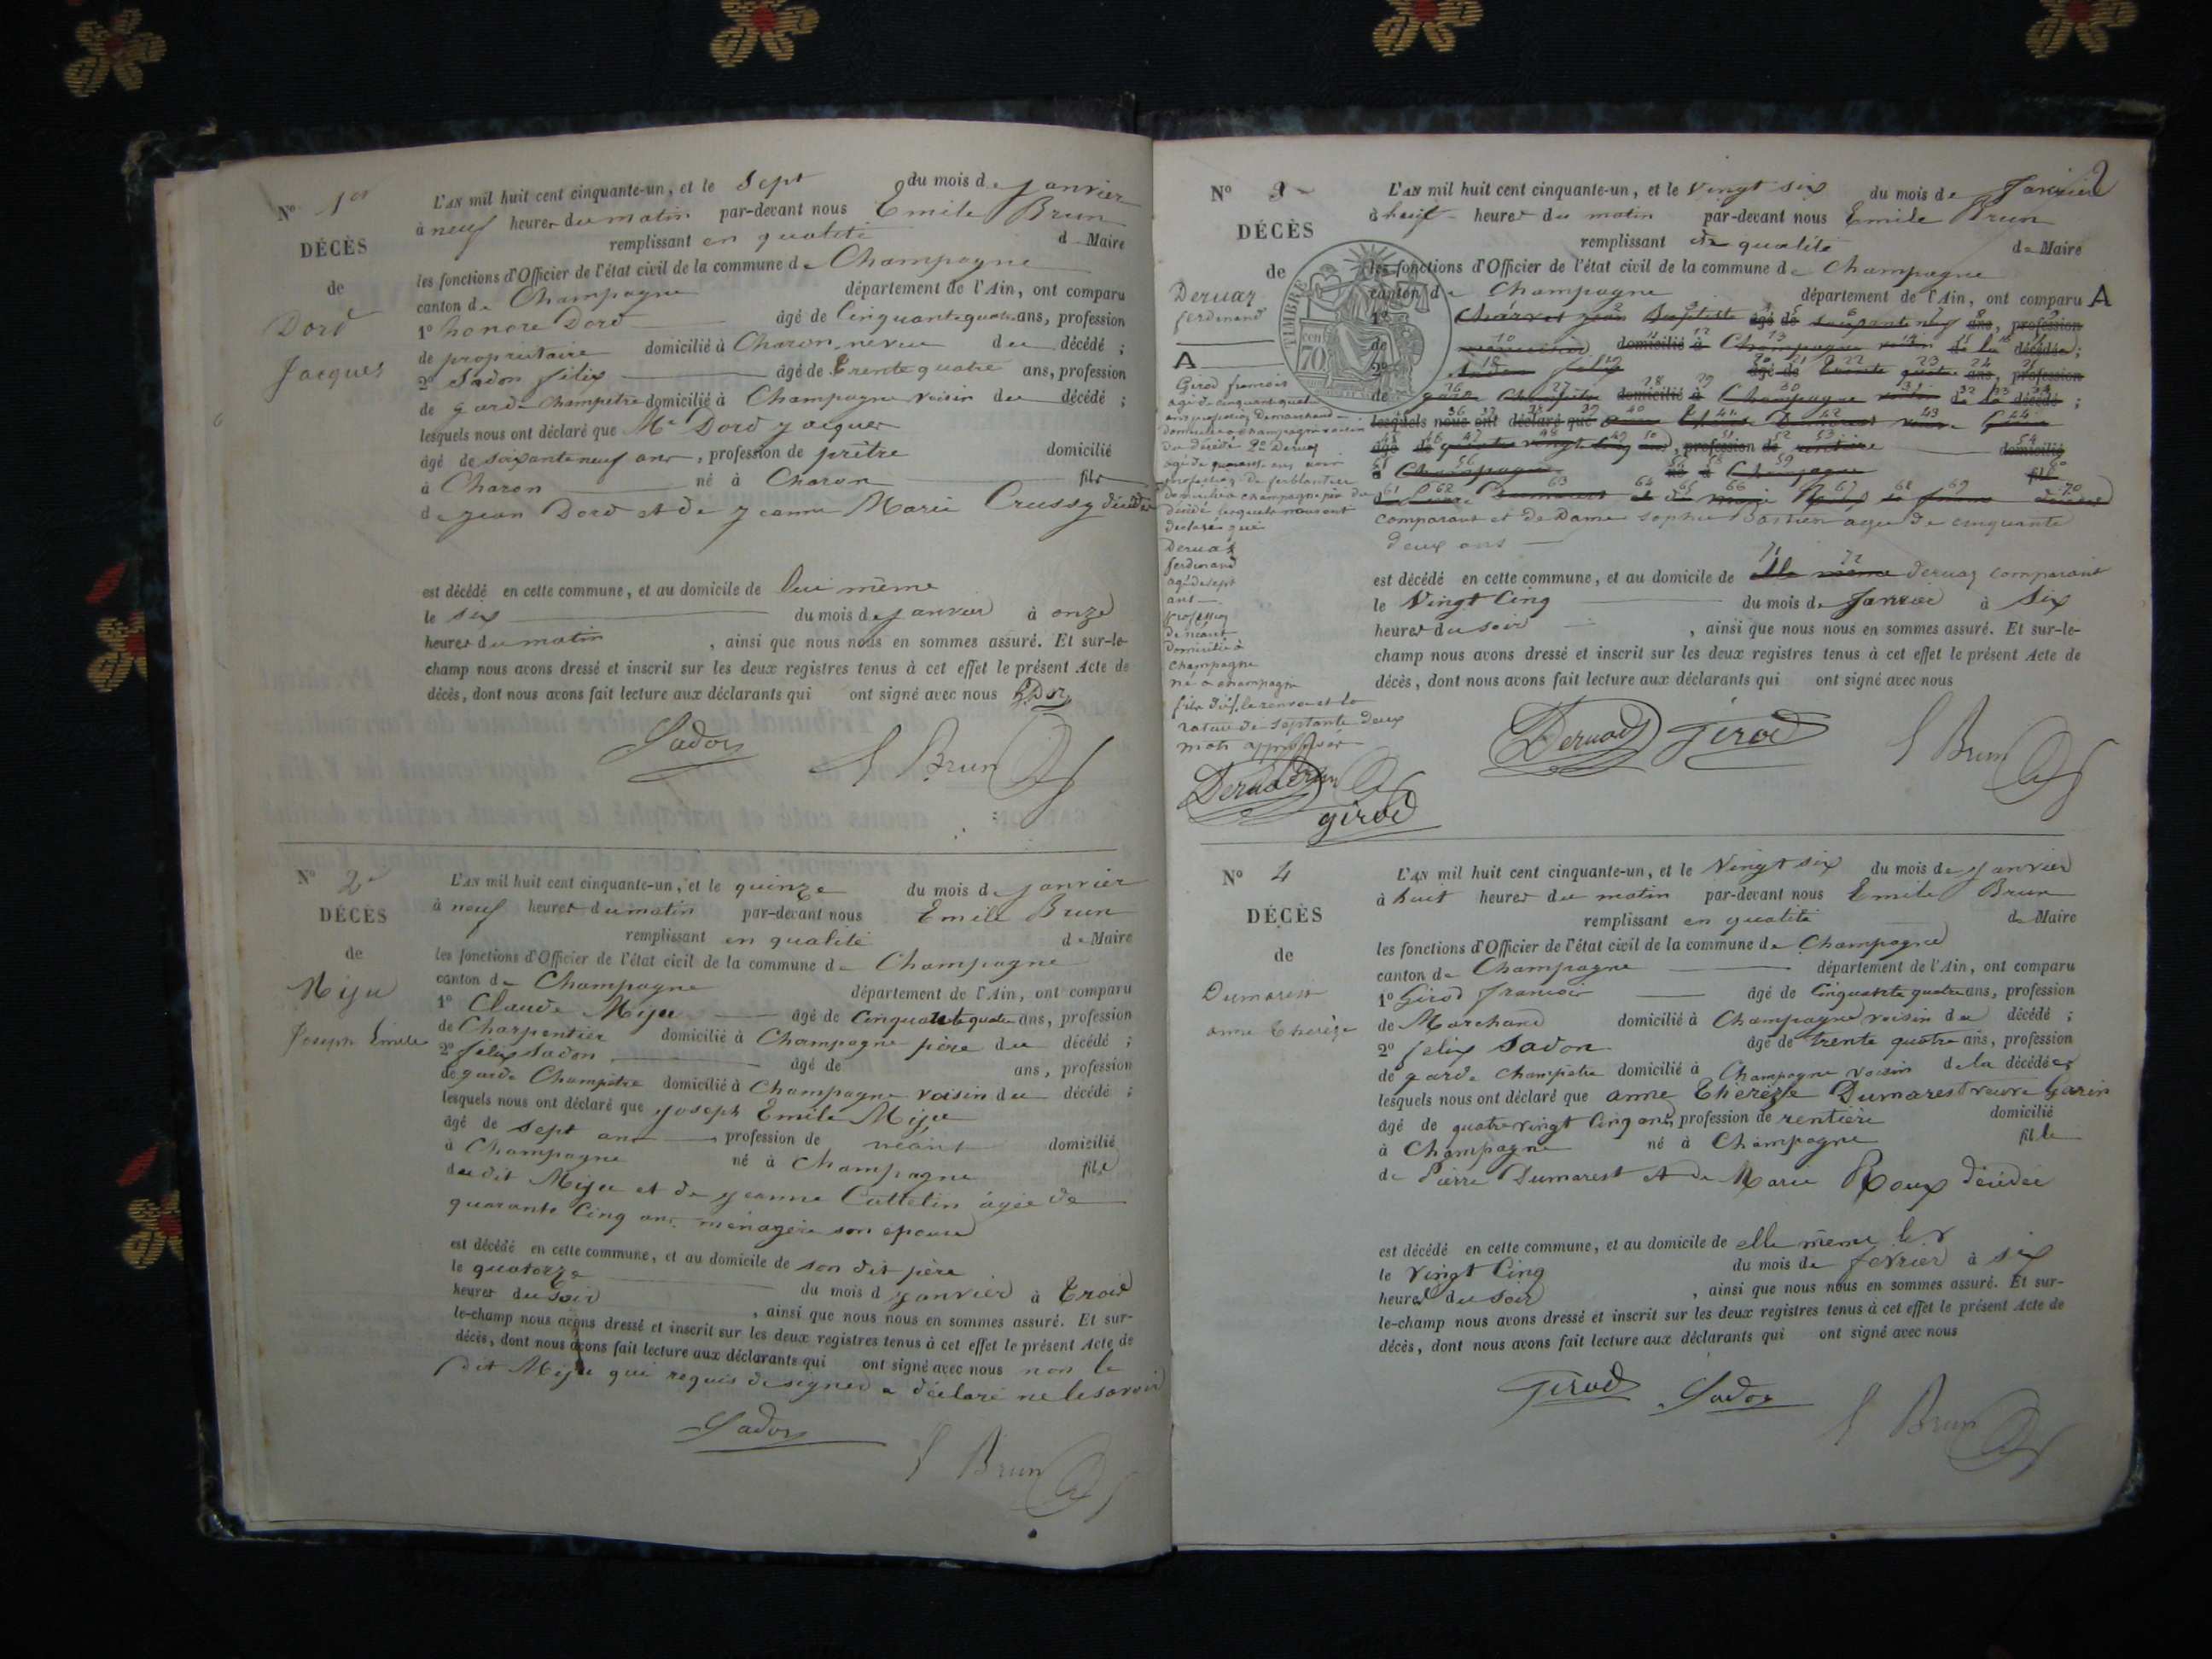 N° 1er
DÉCÈS
de
Dord
Jacques
L'AN mil huit cent cinquante-un, et le Sept du mois de janvier
à neuf heures du matin par-devant nous Emile Brun
remplissant en qualité de Maire
les fonctions d'Officier de l'état civil de la commune de Champagne
canton de Champagne département de l'Ain, ont comparu
1° honoré Dord âgé de Cinquante quatre ans, profession
de propriétaire domicilié à Charon neveu du décédé ;
2° Sadon félix âgé de trente quatre ans, profession
de garde Champêtre domicilié à Champagne voisin du décédé ;
lesquels nous ont déclaré que Mr Dord jacques
âgé de soixante neuf ans, profession de prêtre domicilié
à Charon né à Charon fils
de jean Dord et de jeanne Marie Crussy décédés
est décédé en cette commune, et au domicile de lui même
le six du mois de janvier à onze
heures du matin, ainsi que nous nous en sommes assuré. Et sur-le-
champ nous avons dressé et inscrit sur les deux registres tenus à cet effet le présent Acte de
décès, dont nous avons fait lecture aux déclarants qui ont signé avec nous
Sadon E Brun
N° 2e
DÉCÈS
de
Miju
Joseph Emile
L'AN mil huit cent cinquante-un, et le quinze du mois de janvier
à neuf heures du matin par-devant nous Emile Brun
remplissant en qualité de Maire
les fonctions d'Officier de l'état civil de la commune de Champagne
canton de Champagne département de l'Ain, ont comparu
1° Claude Miju âgé de Cinquante quatre ans, profession
de Charpentier domicilié à Champagne père du décédé ;
2° félix Sadon âgé de ans, profession
de garde Champêtre domicilié à Champagne voisin du décédé ;
lesquels nous ont déclaré que joseph Emile Miju
âgé de sept ans profession de néant domicilié
à Champagne né à Champagne fils
du dit Miju et de jeanne Cattelin âgée de
quarante Cinq ans ménagère son épouse
est décédé en cette commune, et au domicile de son dit père
le quatorze du mois d janvier à trois
heures du soir, ainsi que nous nous en sommes assuré. Et sur-
le-champ nous avons dressé et inscrit sur les deux registres tenus à cet effet le présent Acte de
décès, dont nous avons fait lecture aux déclarants qui ont signé avec nous non le
dit Miju qui requis de signer a déclaré ne le savoir
Sadon E Brun
2
N° 3
DÉCÈS
de
Dervaz
ferdinand
TIMBRE
70
cent
A
Girod francois
âgé de cinquante quatre
ans profession de marchand
domicilié à champagne voisin
du décédé 2° Dervaz
âgé de quarante ans
profession de ferblantier
domicilié à champagne père du
décédé lesquels nous ont
déclaré que
Dervaz
ferdinand
âgé de sept
ans
profession
de néant
domicilié à
champagne
né à champagne
fils du le renvoi et la
rature de septante deux
mots approuvés
Dervaz Brun
girod
L'AN mil huit cent cinquante-un, et le Vingt six du mois de Janvier
à huit heures du matin par-devant nous Emile Brun
remplissant en qualité de Maire
les fonctions d'Officier de l'état civil de la commune de Champagne
canton de Champagne département de l'Ain, ont comparu A
1° Charvet jean Baptiste âgé de soixante neuf ans, profession
de domicilié à Champagne voisin de la décédée ;
2° Sadon félix âgé de trente quatre ans, profession
de garde Champêtre domicilié à Champagne voisin de la décédé ;
lesquels nous ont déclaré que anne thérèse Dumarest veuve Garin
âgé de quatre vingt Cinq ans, profession de rentière domicilié
à Champagne né à Champagne fille
de Pierre Dumarest et de Marie Roux décédés
comparant et de Dame Sophie Bastien agée de cinquante
deux ans
est décédé en cette commune, et au domicile de elle même Dervaz comparant
le Vingt Cinq du mois de Janvier à Six
heures du soir, ainsi que nous nous en sommes assuré. Et sur-le-
champ nous avons dressé et inscrit sur les deux registres tenus à cet effet le présent Acte de
décès, dont nous avons fait lecture aux déclarants qui ont signé avec nous
Dervaz Girod E Brun
N° 4
DÉCÈS
de
Dumarest
anne thérèze
L'AN mil huit cent cinquante-un, et le Vingt six du mois de janvier
à huit heures du matin par-devant nous Emile Brun
remplissant en qualité de Maire
les fonctions d'Officier de l'état civil de la commune de Champagne
canton de Champagne département de l'Ain, ont comparu
1° Girod francois âgé de Cinquante quatre ans, profession
de Marchand domicilié à Champagne voisin du décédé ;
2° félix Sadon âgé de trente quatre ans, profession
de garde champetre domicilié à Champagne voisin de la décédée
lesquels nous ont déclaré que anne thérèze Dumarest veuve Garin
âgé de quatre vingt Cinq ans, profession de rentière domicilié
à Champagne né à Champagne fille
de Pierre Dumarest et de Marie Roux décédée
est décédé en cette commune, et au domicile de elle même le
le Vingt Cinq du mois de fevrier à six
heures du soir, ainsi que nous nous en sommes assuré. Et sur-
le-champ nous avons dressé et inscrit sur les deux registres tenus à cet effet le présent Acte de
décès, dont nous avons fait lecture aux déclarants qui ont signé avec nous
Girod Sadon E Brun